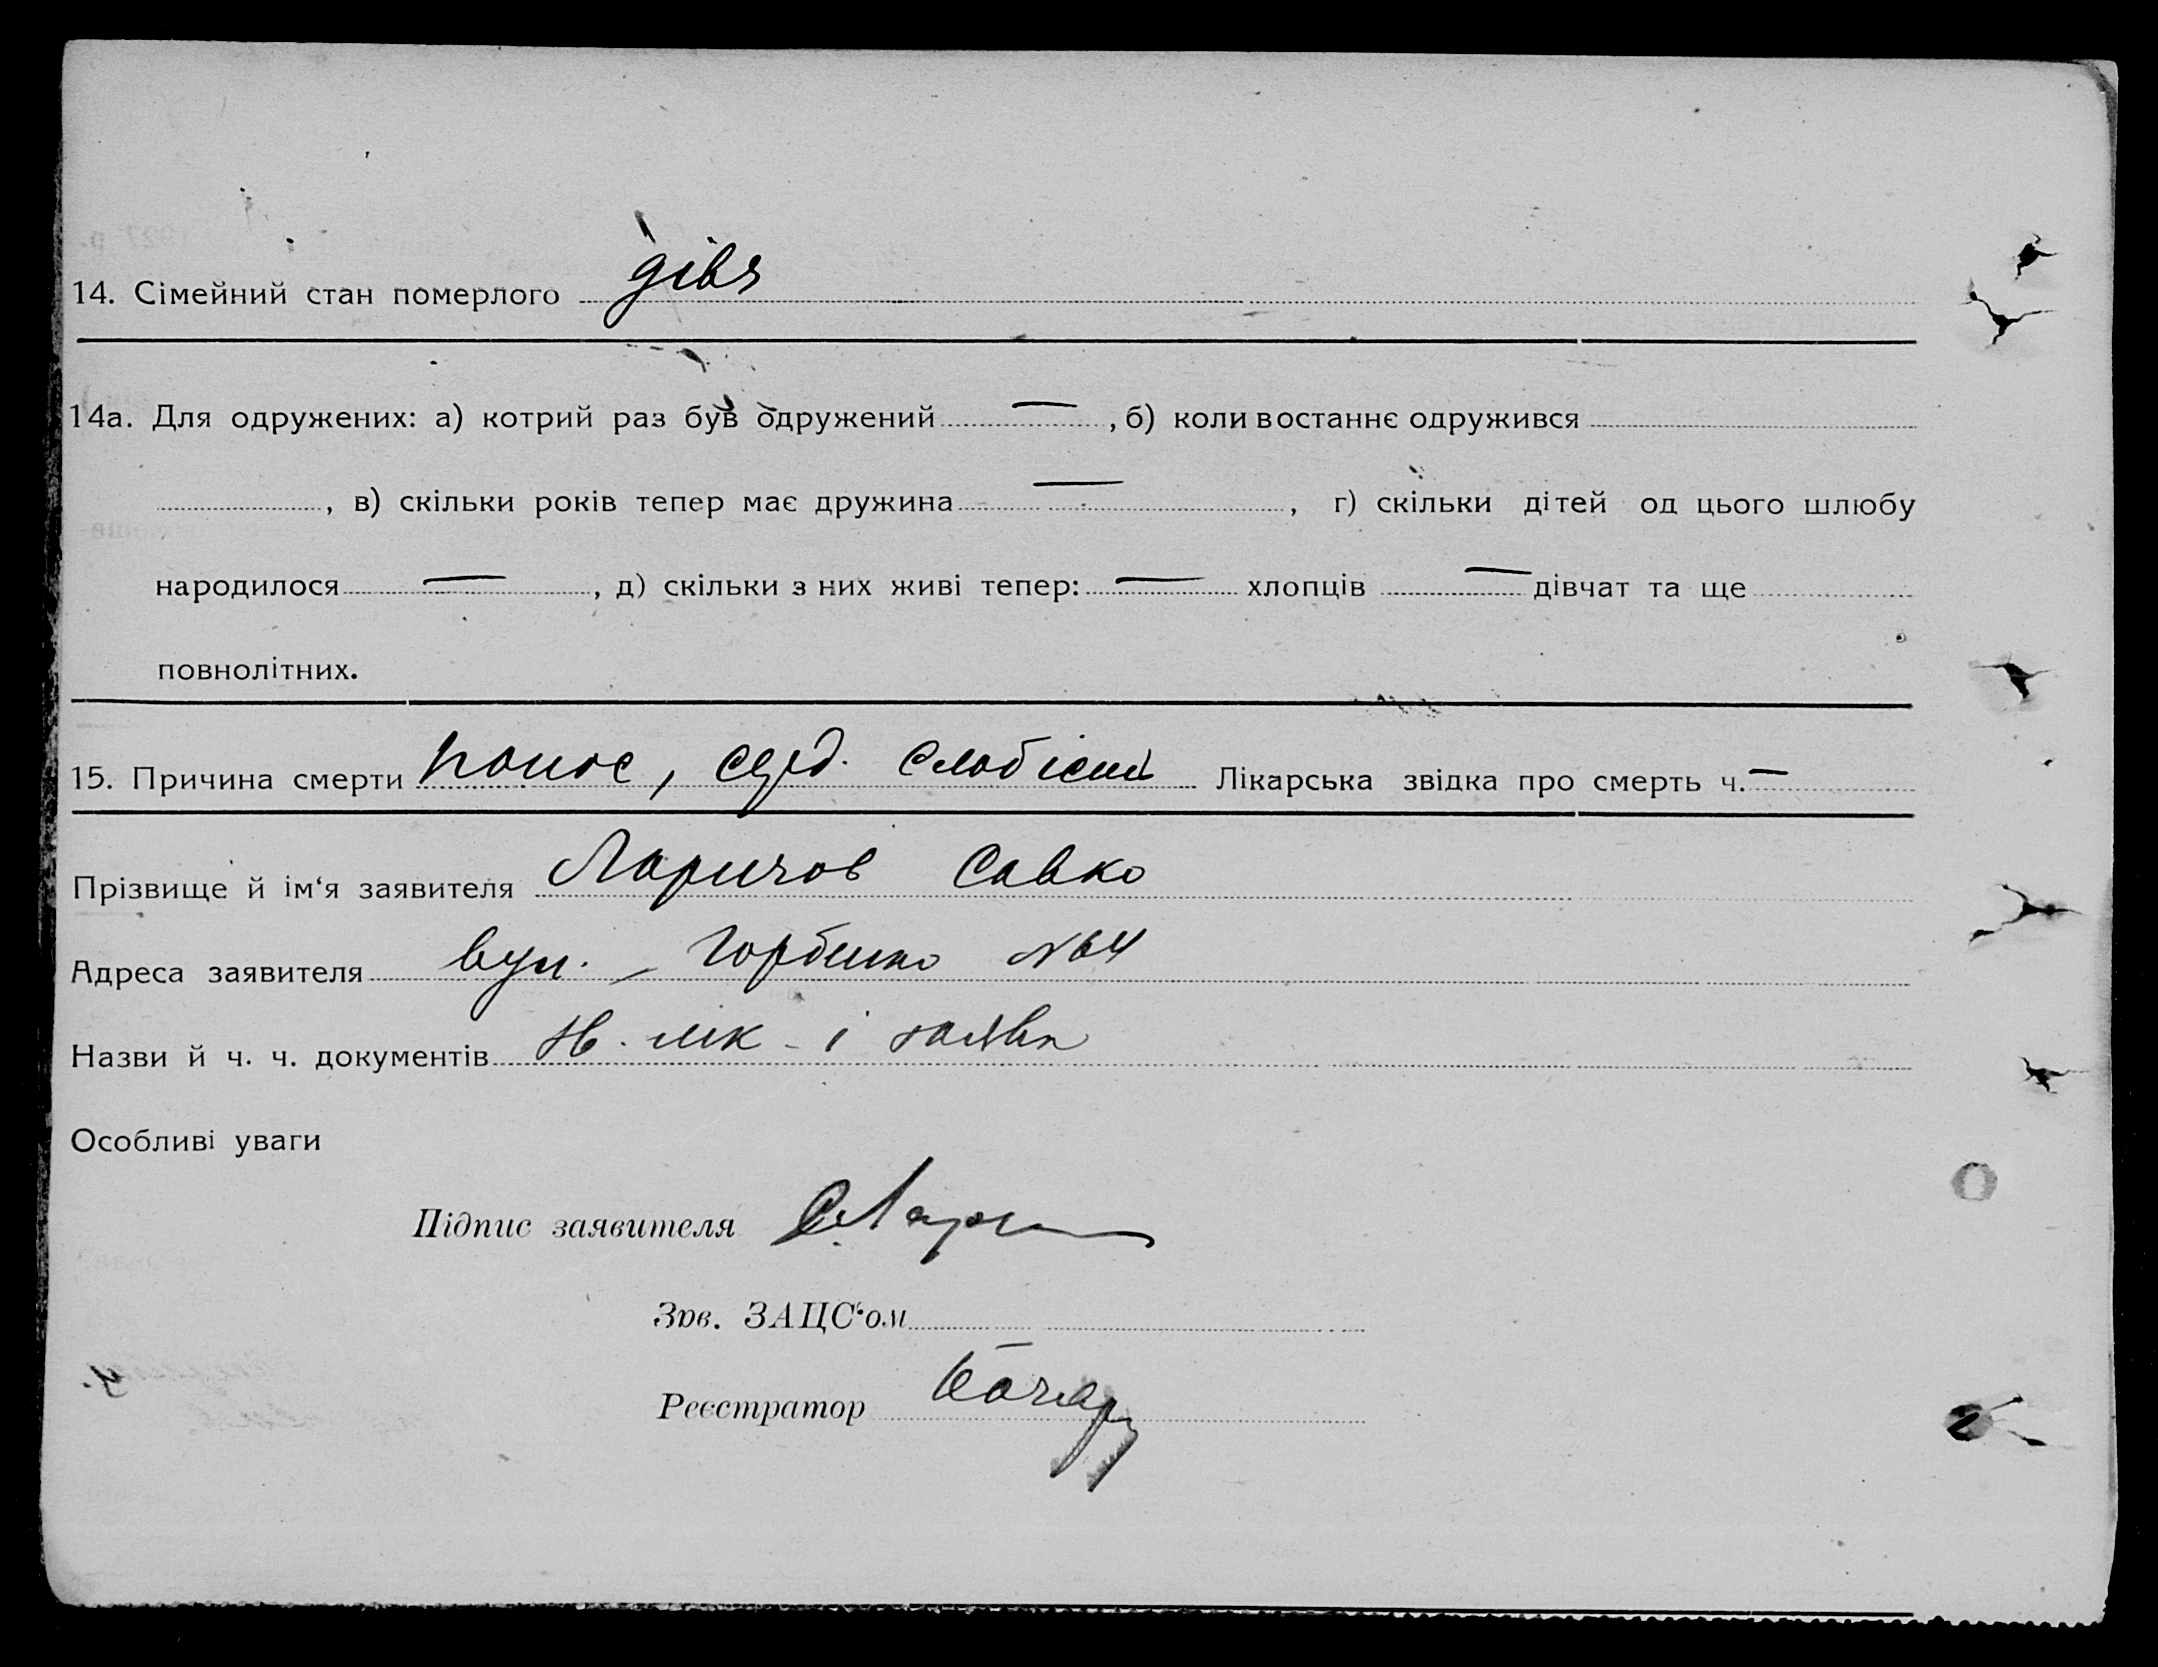 14. Сімейний стан померлого дівч
14а. Для одружених: а) котрий раз був одружений — , б) коли востаннє одружився
, в) скільки років тепер має дружина — , г) скільки дітей од цього шлюбу
народилося — , д) скільки з них живі тепер: — хлопців — дівчат та ще
повнолітних.
15. Причина смерти понос, серд. слабість Лікарська звідка про смерть ч. —
Прізвище й ім‘я заявителя Ларичов Савко
Адреса заявителя вул. Горбенко №64
Назви й ч. ч. документів лік. і заява
Особливі уваги
Підпис заявителя СЛари
Зав. ЗАЦС‘ом
Реєстратор